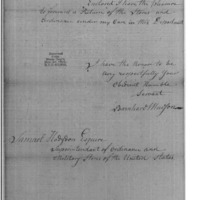 Enclosed I have the Honour
to forward a Return of the Stores and
Ordnance under my Care in this Department
I have the Honor to be
very respectfully Your
Obedient Humble
Servant
Samuel Hodgdon Esquire
Superintendent of Ordnance and
Military Stores of the United States